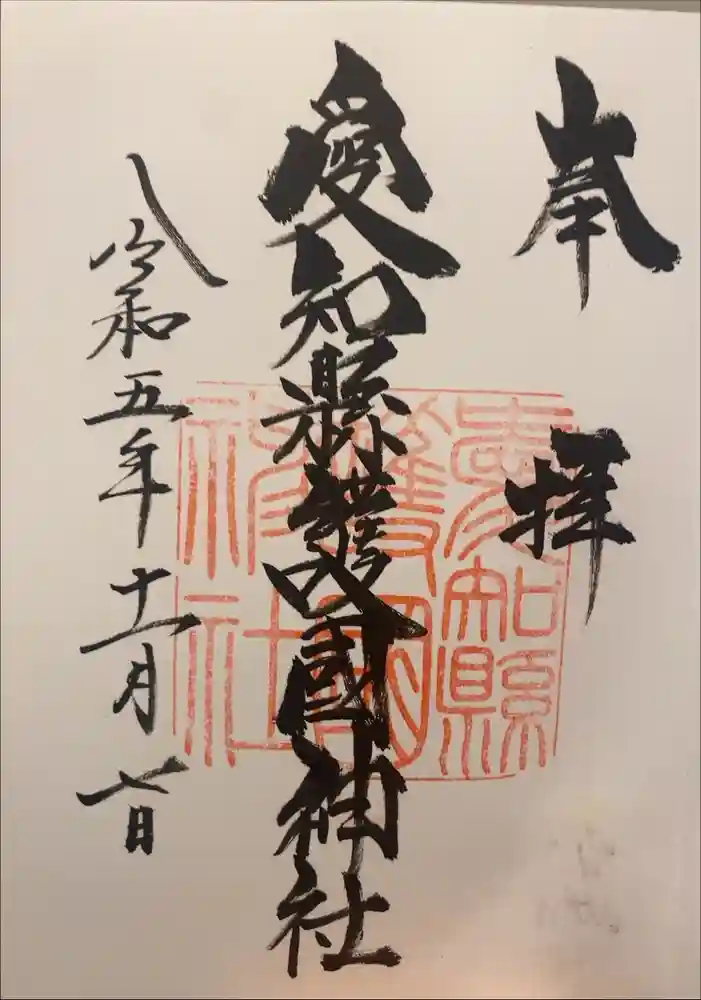 奉拝
愛知縣護國神社
令和五年十一月七日
愛知縣
護國
神社